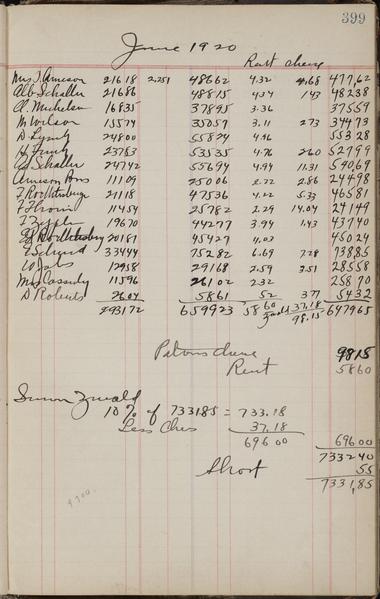 399
June 1920
Rent cheese
Mrs J. Arneson 21618 2.251 48662 4.32 4.68 477,62
Alb Schaller 21686 48815 4.34 1.43 48238
A. Michelsen 16835 37895 3.36 37559
M Wilson 15574 35057 3.11 2.73 34473
24800 55824 4.96 55328
23783 53535 4.76 2.60 52799
Schaller 24742 55694 4.94 11.31 54069
Arneson Bros 11109 25006 2.22 2.86 24498
21118 47536 4.22 5.33 46581
11454 25782 2.29 14.04 24149
19670 44277 3.94 1.43 43740
20181 45427 4.03 45024
33444 75282 6.69 7.28 73885
12958 29168 2.59 3.51 28558
Mrs Cassidy 11596 26102 2.32 25870
D Roberts 2604 5861 52 377 5432
293172 659923 58.60 37.18 647965
98.15
Patrons cheese 9815
Rent 5860
10 % of 733185 = 733.18
Less Ches 37.18
696.00 69600
733240
Short 55
7331,85